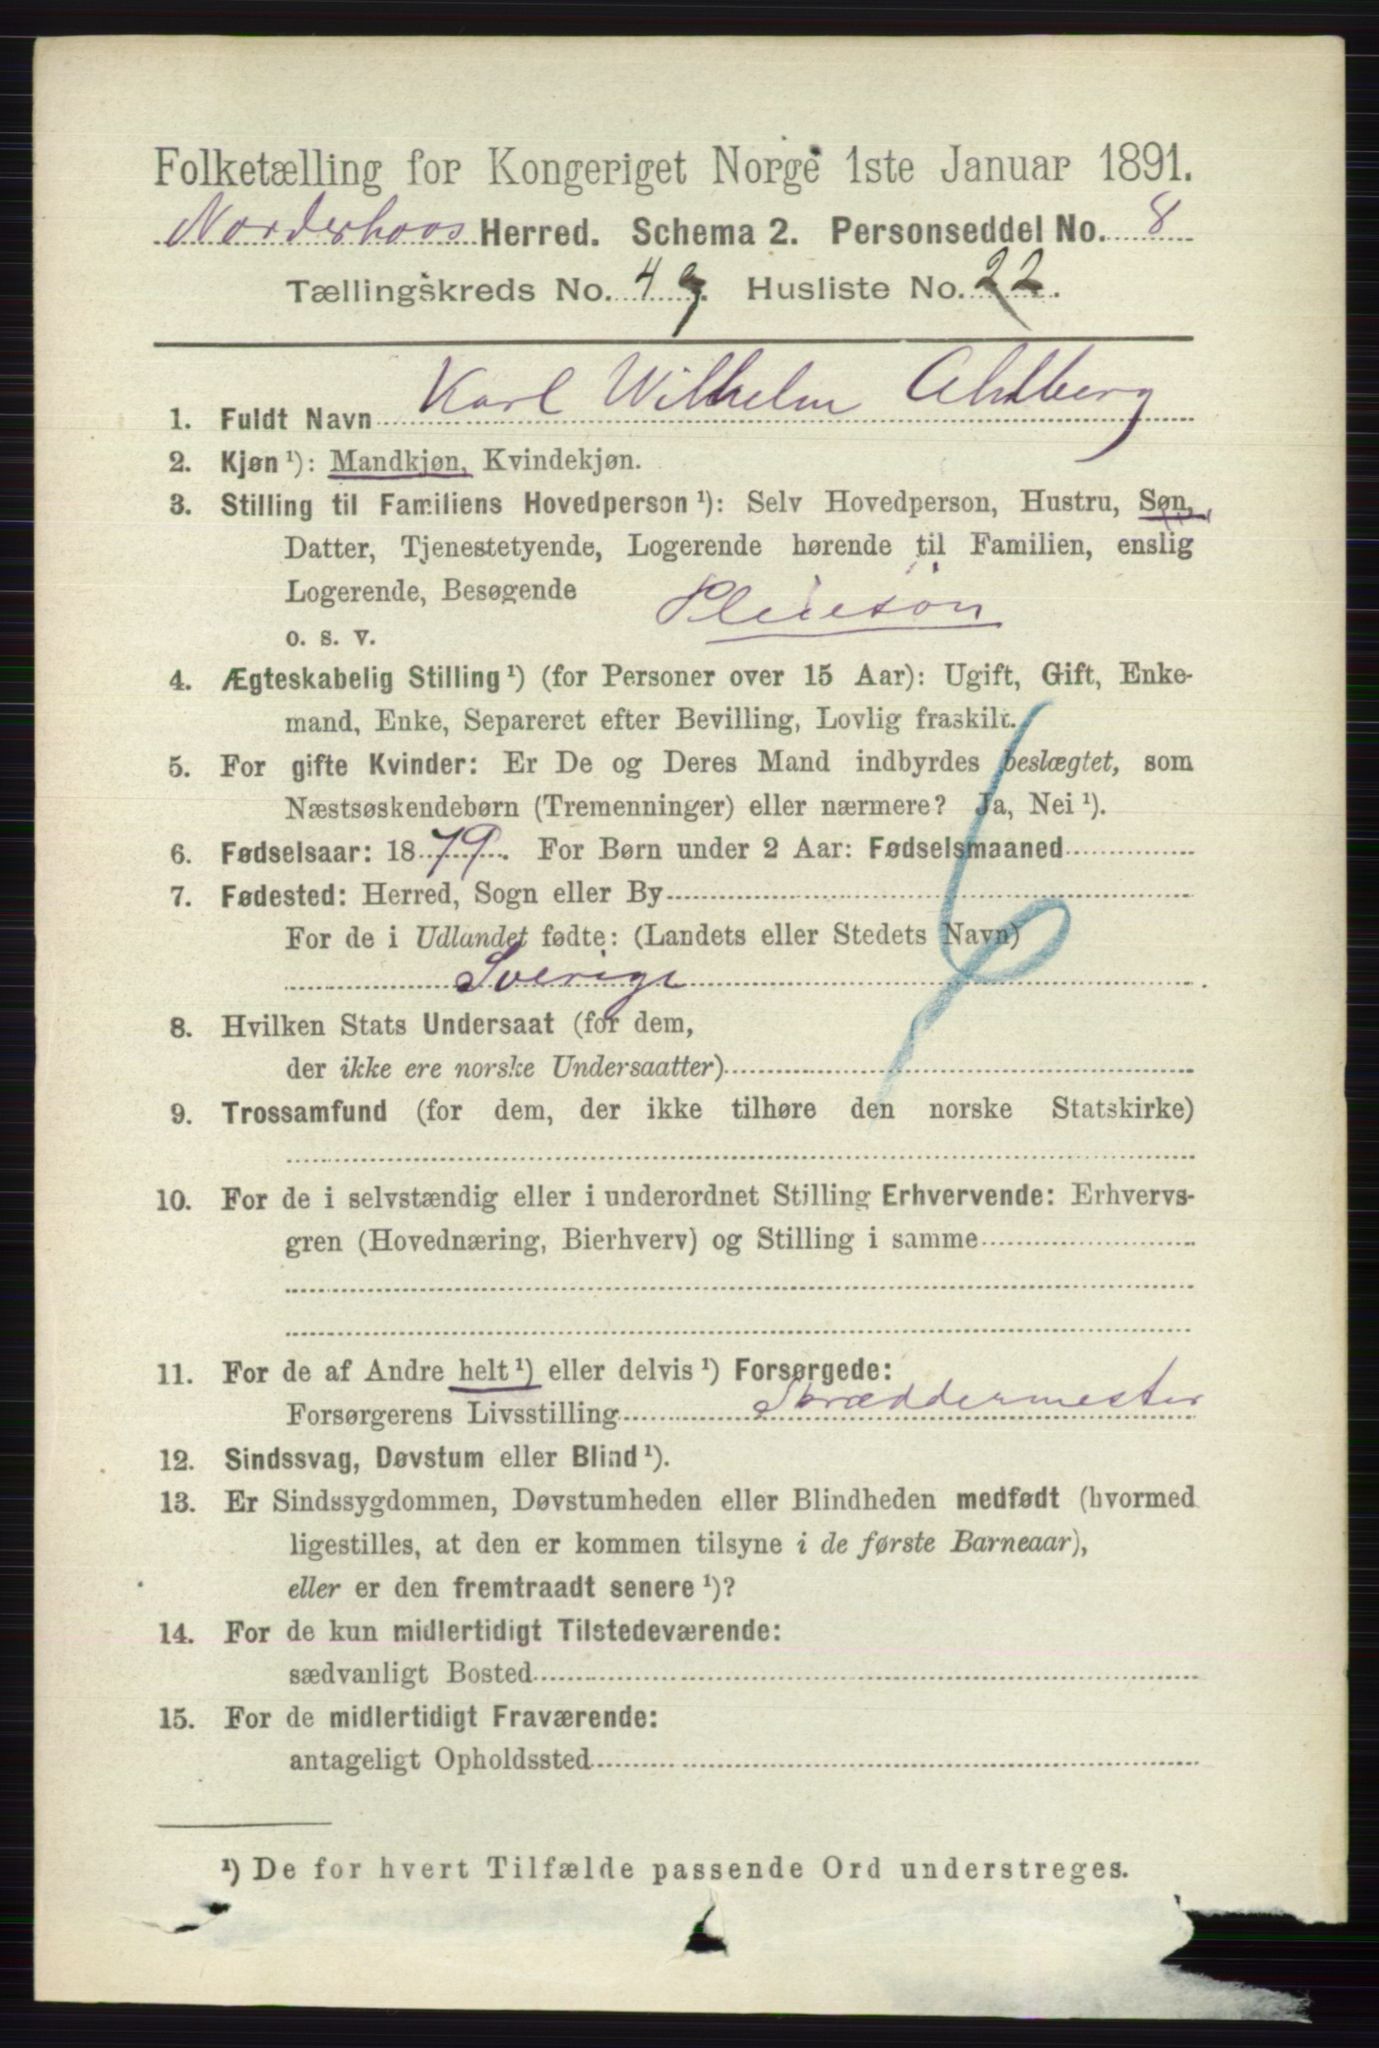 Folketælling for Kongeriget Norge 1ste Januar 1891.
Norderhoos Herred. Schema 2. Personseddel No. 8
Tællingskreds No. 4 Husliste No. 22.
1. Fuldt Navn Karl Wilhelm Ahlberg
2. Kjøn ¹): Mandkjøn, Kvindekjøn.
3. Stilling til Familiens Hovedperson ¹): Selv Hovedperson, Hustru, Søn,
Datter, Tjenestetyende, Logerende hørende til Familien, enslig
Logerende, Besøgende
Pleiesøn
o. s. v.
4. Ægteskabelig Stilling ¹) (for Personer over 15 Aar): Ugift, Gift, Enke-
mand, Enke, Separeret efter Bevilling, Lovlig fraskilt.
5. For gifte Kvinder: Er De og Deres Mand indbyrdes beslægtet, som
Næstsøskendebørn (Tremenninger) eller nærmere? Ja, Nei ¹).
6. Fødselsaar: 1879. For Børn under 2 Aar: Fødselsmaaned
7. Fødested: Herred, Sogn eller By
For de i Udlandet fødte: (Landets eller Stedets Navn)
Sverige
8. Hvilken Stats Undersaat (for dem,
der ikke ere norske Undersaatter)
9. Trossamfund (for dem, der ikke tilhøre den norske Statskirke)
10. For de i selvstændig eller i underordnet Stilling Erhvervende: Erhvervs-
gren (Hovednæring, Bierhverv) og Stilling i samme
11. For de af Andre helt ¹) eller delvis ¹) Forsørgede:
Forsørgerens Livsstilling Skræddermester
12. Sindssvag, Døvstum eller Blind ¹).
13. Er Sindssygdommen, Døvstumheden eller Blindheden medfødt (hvormed
ligestilles, at den er kommen tilsyne i de første Barneaar),
eller er den fremtraadt senere ¹)?
14. For de kun midlertidigt Tilstedeværende:
sædvanligt Bosted
15. For de midlertidigt Fraværende:
antageligt Opholdssted
¹) De for hvert Tilfælde passende Ord understreges.